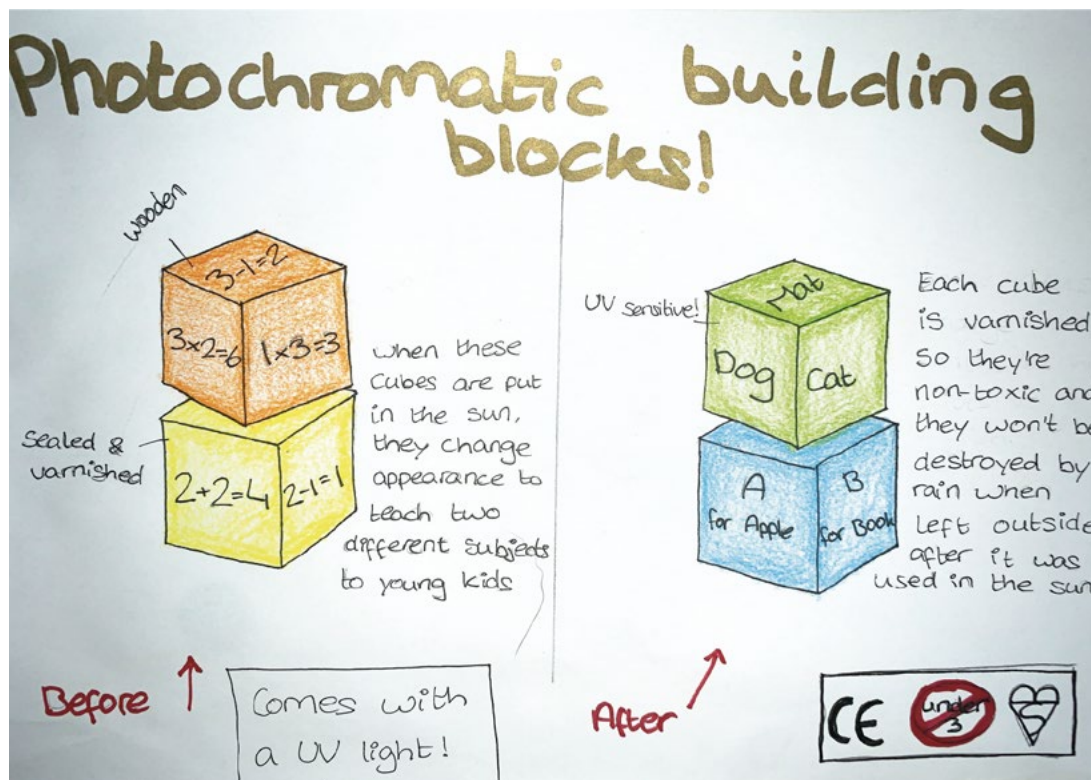 Photochromatic building
blocks!
wooden
3-1=2
3x2=6
1x3=3
Sealed &
varnished
2+2=4
2-1=1
when these
cubes are put
in the sun,
they change
appearance to
teach two
different subjects
to young kids
Before
Comes with
a UV light!
UV sensitive!
Mat
Dog
Cat
A
for Apple
B
for Book
Each cube
is varnished
So they're
non-toxic and
they won't be
destroyed by
rain when
left outside
after it was
used in the sun
After
CE
under
3